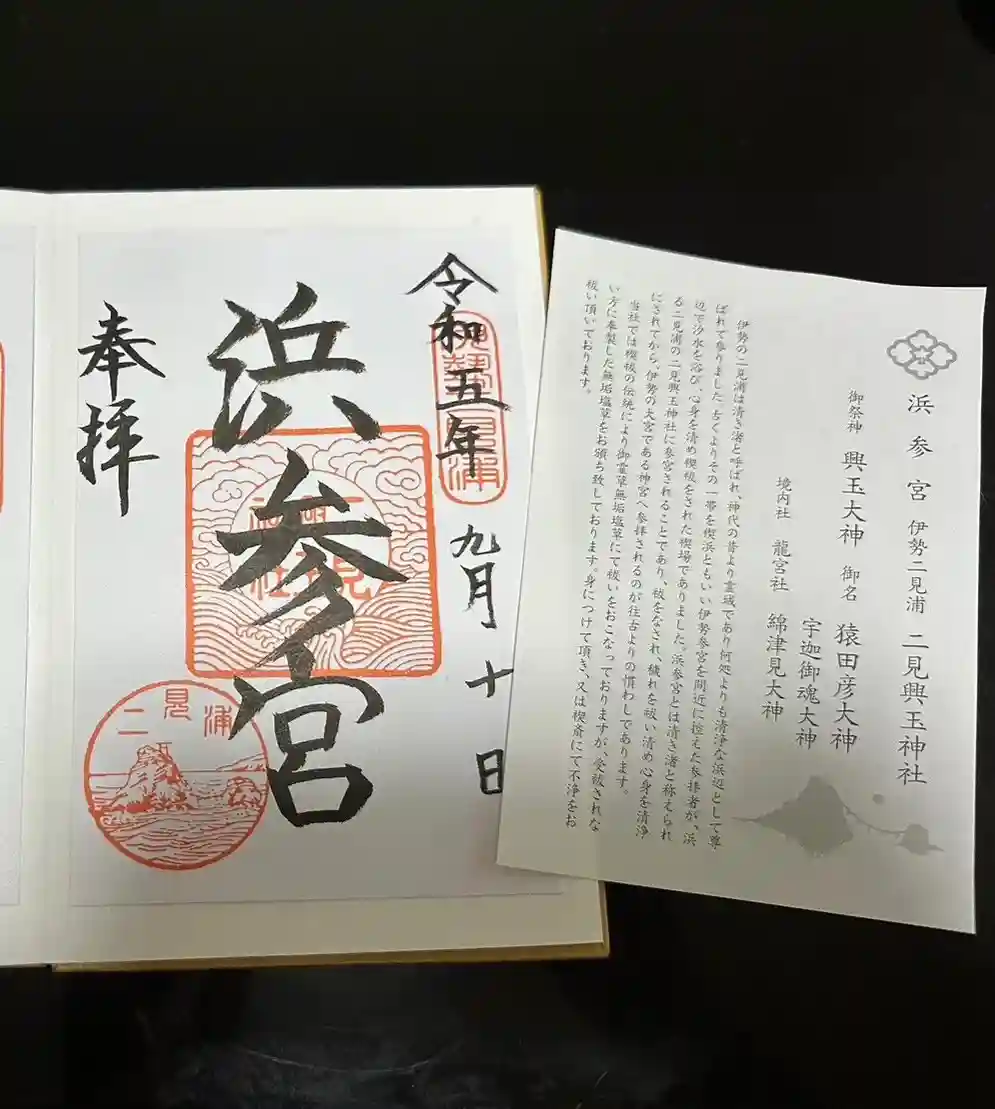 令和五年 九月 十日
浜参宮
奉拝
二見浦
浜参宮 伊勢二見浦 二見興玉神社
御祭神 興玉大神 御名 猿田彦大神
宇迦御魂大神
境内社 龍宮社 綿津見大神
伊勢の二見浦は清き渚と呼ばれ、神代の昔より霊域であり何処よりも清浄な浜辺として尊
ばれて参りました。古くよりその一帯を禊浜ともいい伊勢参宮を間近に控えた参拝者が、浜
辺で汐水を浴び、心身を清め禊祓をされた禊場でありました。浜参宮とは清き渚と称えられ
る二見浦の二見興玉神社に参宮されることであり、祓をなされ、穢れを祓い清め心身を清浄
にされてから、伊勢の大宮である神宮へ参拝されるのが往古よりの慣わしであります。
当社では禊祓の伝統により御霊草無垢塩草にて祓いをおこなっておりますが、受祓されな
い方に奉製した無垢塩草をお頒ち致しております。身につけて頂き、又は禊斎にて不浄をお
祓い頂いております。